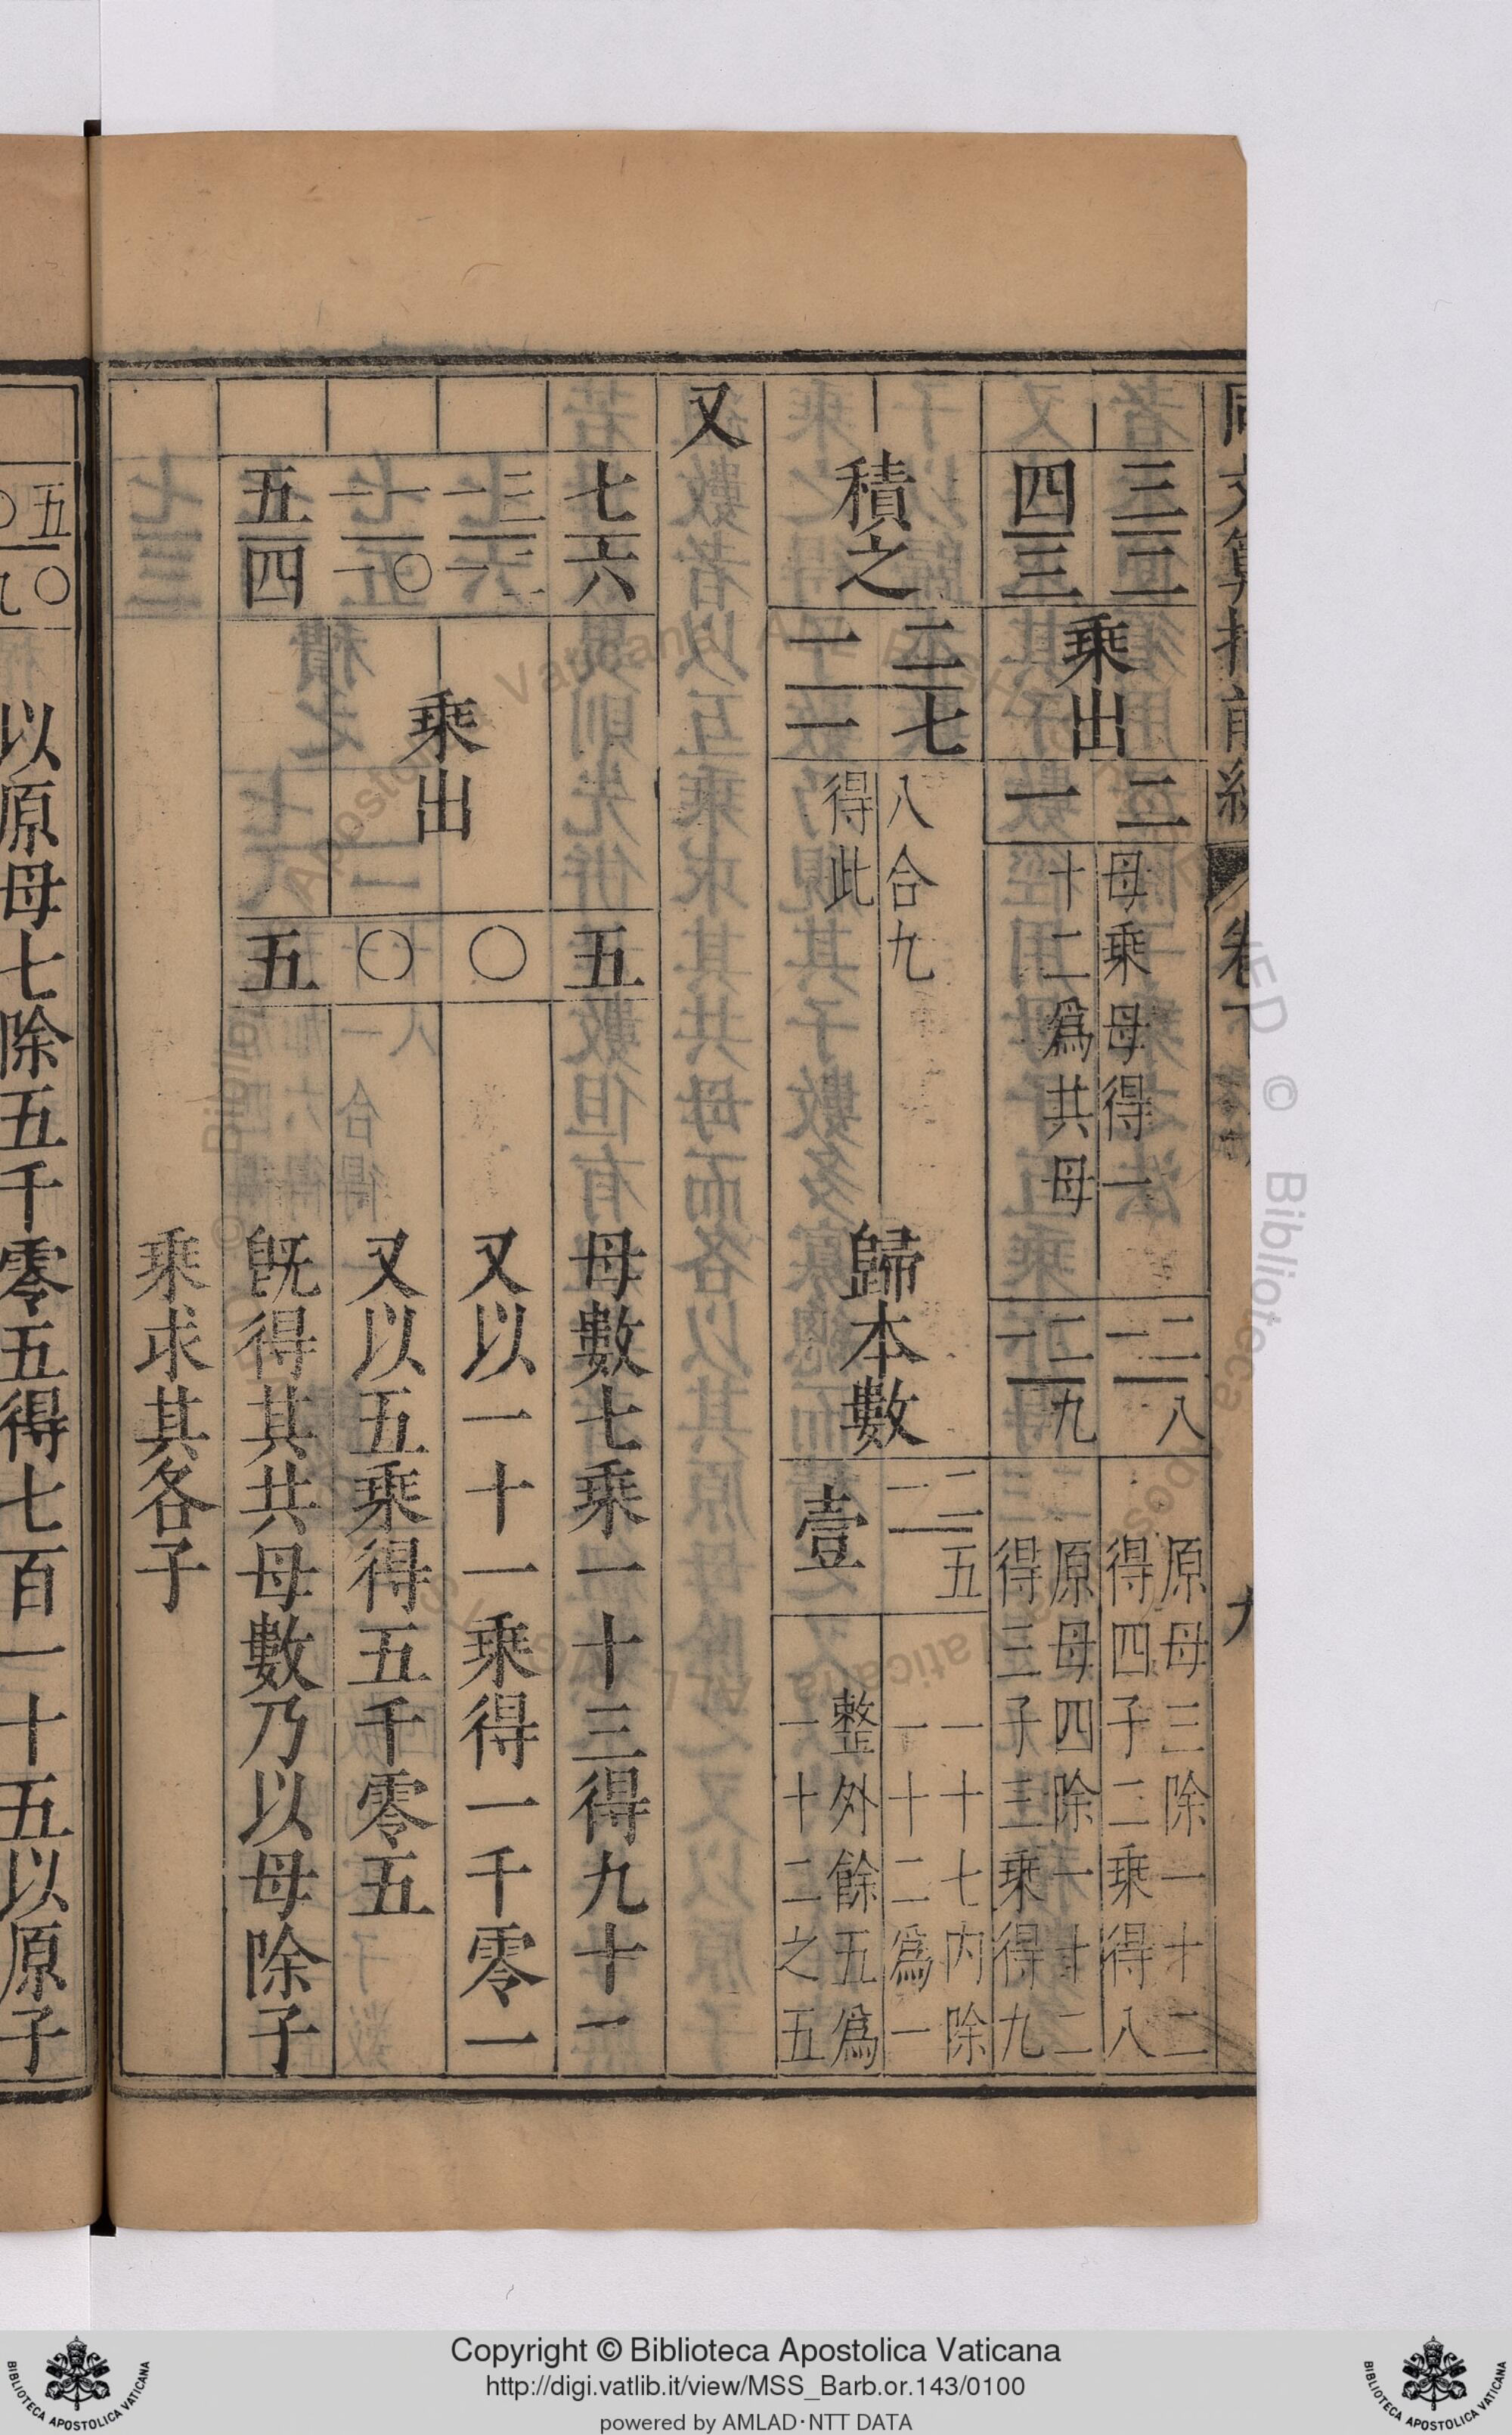 同文算指前編 卷下 九
三二 乘出 二 母乘母得一 一二八 原母三除一十二
四三 一 十二爲共母 一二九 得四子二乘得八
原母四除一十二
得三子三乘得九
積之 一七 八合九 歸本數 一二五 一十七内除
二一 得此 壹 一十二爲一
整外餘五爲
一十二之五
又
七六 五 母數七乘一十三得九十一
一三 一二 乘出 〇 又以一十一乘得一千零一
一一 一〇 〇 又以五乘得五千零五
五四 五 既得其共母數乃以母除子
乘求其各子
五〇
〇九
以原母七除五千零五得七百一十五以原子
Copyright © Biblioteca Apostolica Vaticana
http://digi.vatlib.it/view/MSS_Barb.or.143/0100
powered by AMLAD·NTT DATA
BIBLIOTECA APOSTOLICA VATICANA
BIBLIOTECA APOSTOLICA VATICANA